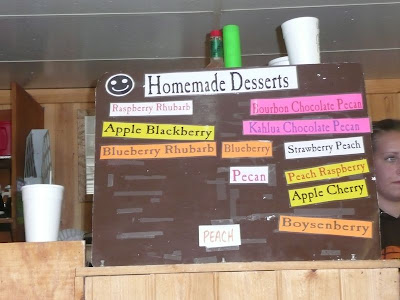 Homemade Desserts
Raspberry Rhubarb
Bourbon Chocolate Pecan
Apple Blackberry
Kahlua Chocolate Pecan
Blueberry Rhubarb
Blueberry
Strawberry Peach
Pecan
Peach Raspberry
Apple Cherry
Boysenberry
PEACH